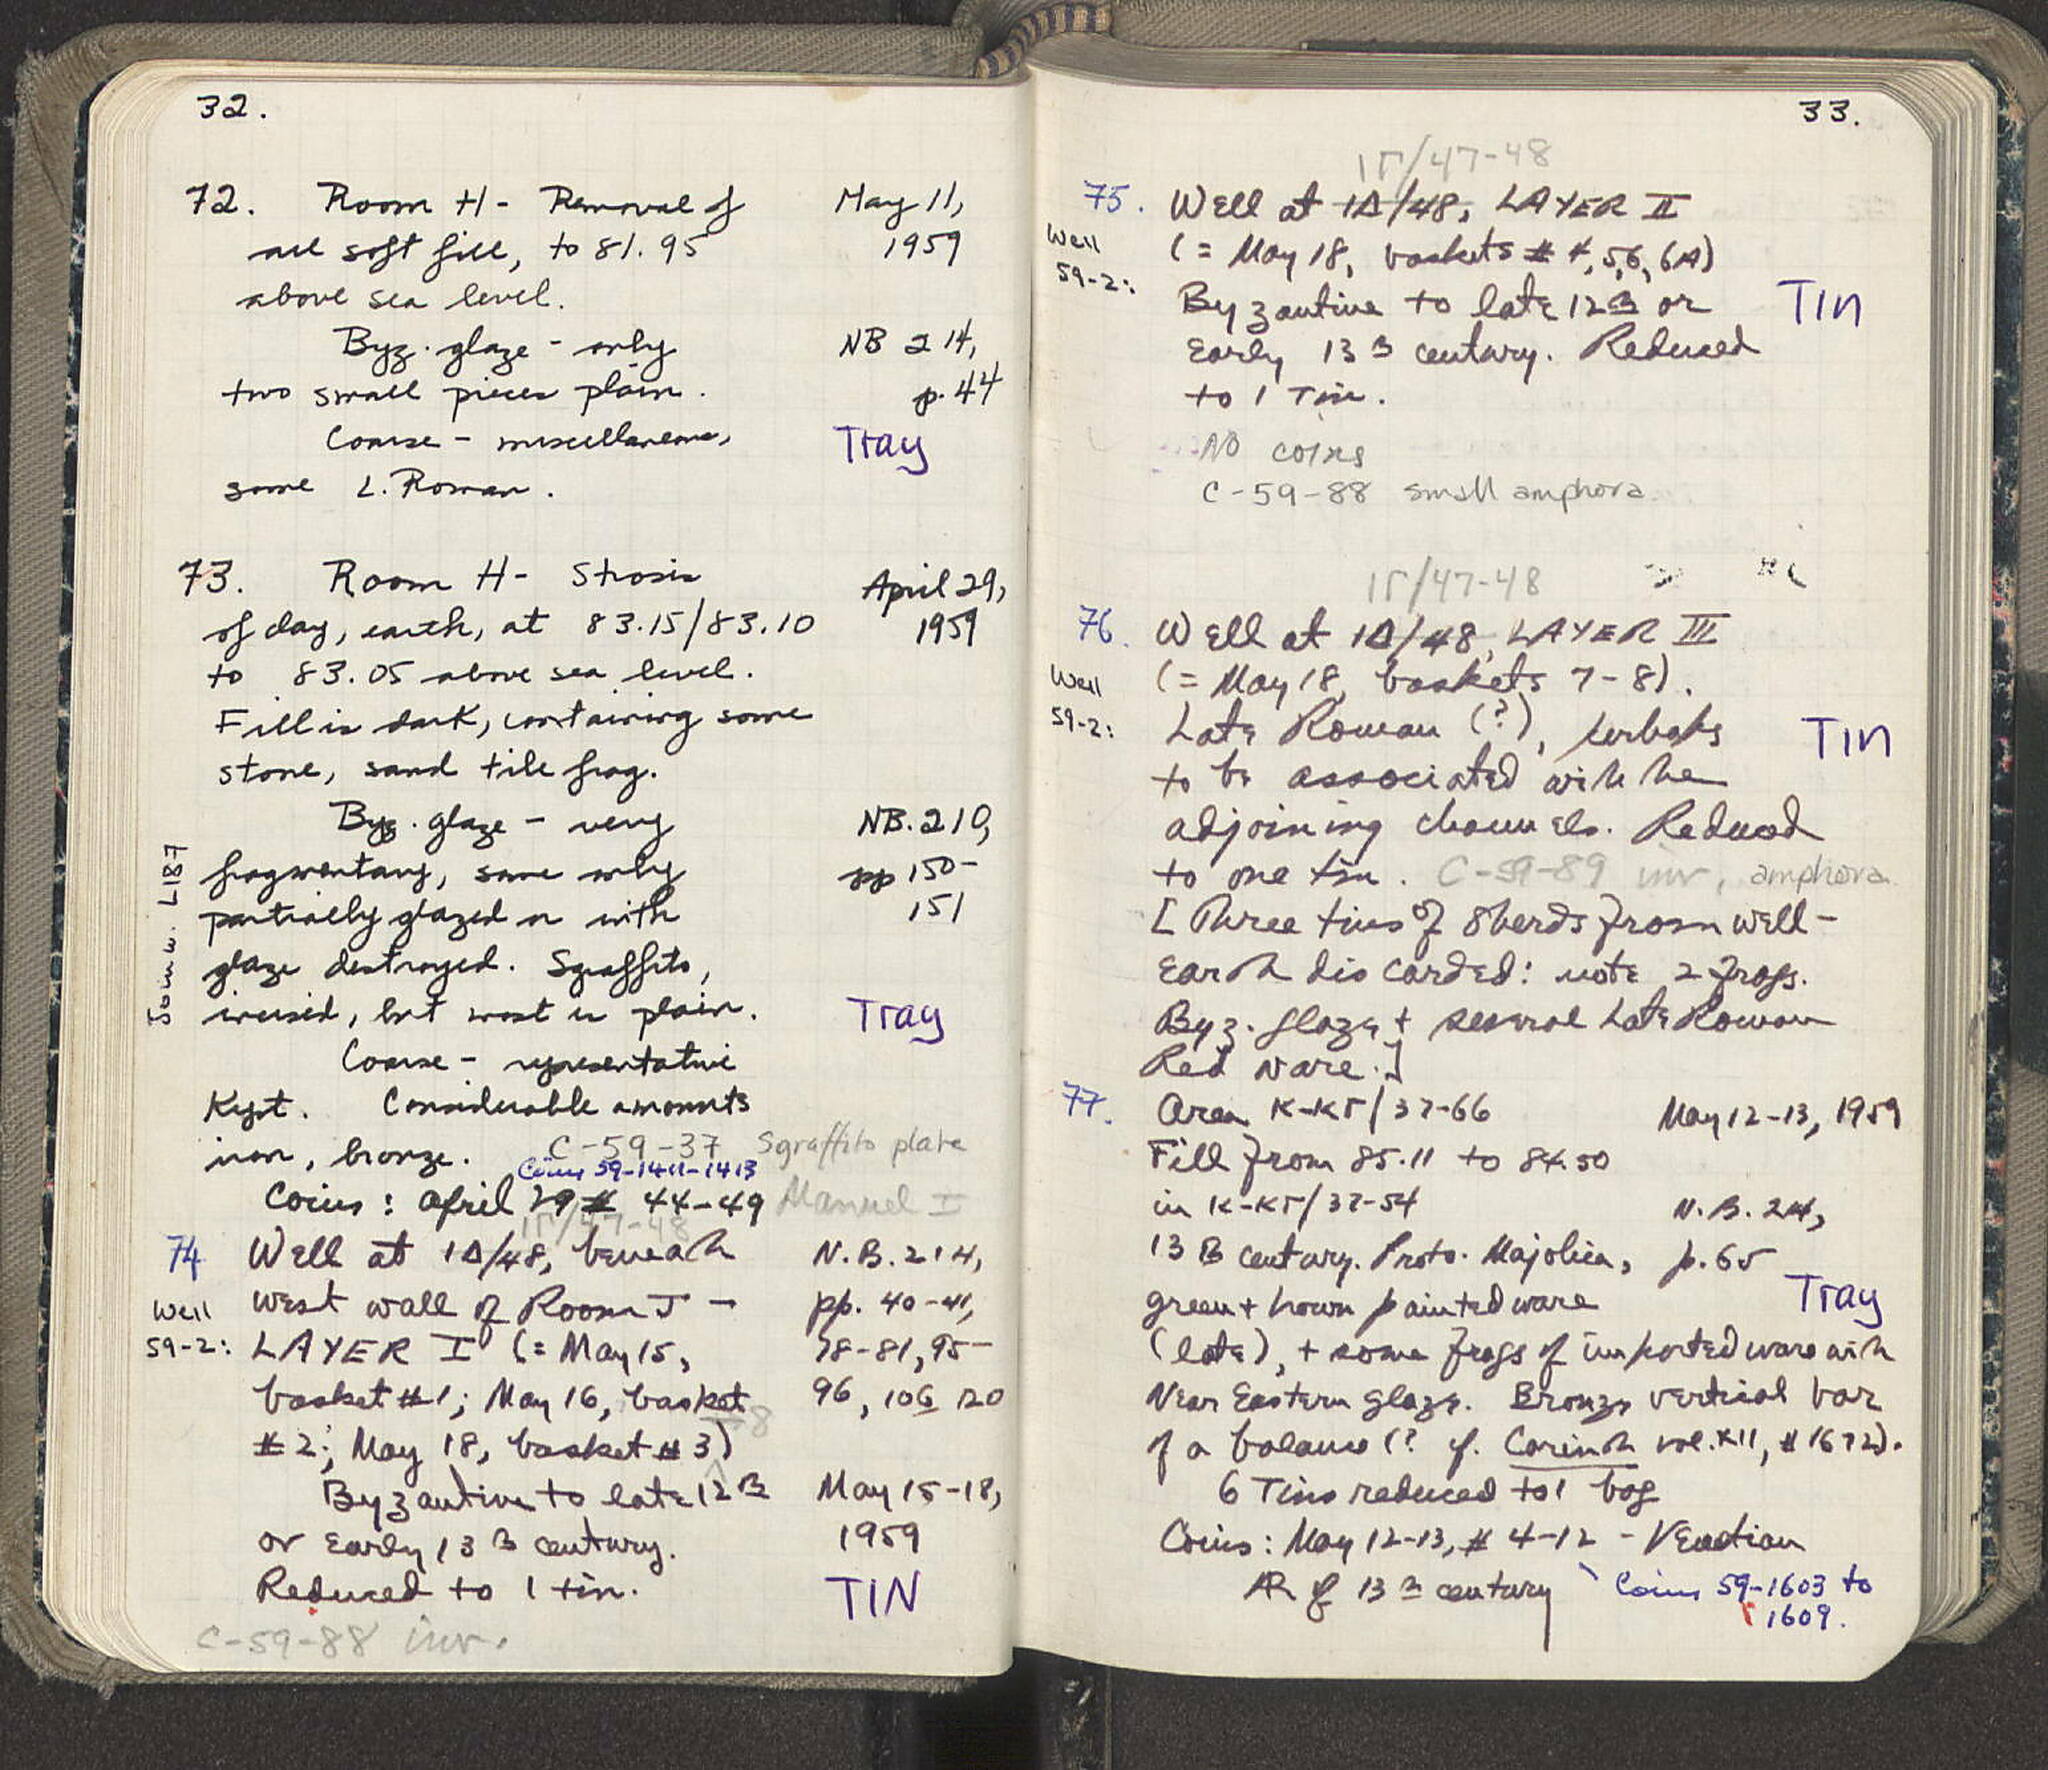 32.
72. Room H - Removal of
all soft fill, to 81.95
above sea level.
May 11,
1959
Byz. glaze - only
two small pieces plain.
NB 214,
p. 44
Coarse - miscellaneous,
some L. Roman.
Tray
73. Room H - Strosis
of day, earth, at 83.15/83.10
to 83.05 above sea level.
April 29,
1959
Fill is dark, containing some
stone, sand tile frag.
Byz. glaze - very
fragmentary, some only
partially glazed or with
glaze destroyed. Sgraffito,
incised, but most is plain.
NB. 210,
pp 150-
151
Tray
Join w. L187
Coarse - representative
Kept. Considerable amounts
iron, bronze. C-59-37 Sgraffito plate
Coins 59-1411-1413
Coins: April 29 # 44-49 Manuel I
1Γ/47-48
74 Well at 1Δ/48, beneath
Well
59-2:
west wall of Room J -
LAYER I (= May 15,
basket #1; May 16, basket
#2; May 18, basket #3)
8
N.B. 214,
pp. 40-41,
78-81, 95-
96, 106 120
Byzantine to late 12th
or Early 13th century.
Reduced to 1 tin.
May 15-18,
1959
TIN
C-59-88 inv.
33.
1Γ/47-48
75. Well at 1Δ/48, LAYER II
Well
59-2:
(= May 18, baskets # 4, 5, 6, 6A)
Byzantine to late 12th or
Early 13th century. Reduced
to 1 Tin.
Tin
No coins
C-59-88 small amphora
1Γ/47-48
76. Well at 1Δ/48, LAYER III
Well
59-2:
(= May 18, baskets 7-8).
Late Roman (?), perhaps
to be associated with the
adjoining channels. Reduced
to one tin. C-59-89 inv, amphora
Tin
[Three tins of sherds from well-
Earth discarded: note 2 frags.
Byz. glaze + several Late Roman
Red ware.]
77. Area K-KΓ/37-66
May 12-13, 1959
Fill from 85.11 to 84.50
in K-KΓ/37-54
N.B. 214,
p. 65
13th century. Proto-Majolica,
green + brown painted ware
Tray
(late), + some frags of imported ware with
Near Eastern glaze. Bronze vertical bar
of a balance (? cf. Corinth vol. XII, #1672).
6 Tins reduced to 1 bag
Coins: May 12-13, # 4-12 - Venetian
AR of 13th century
Coins 59-1603 to
1609.